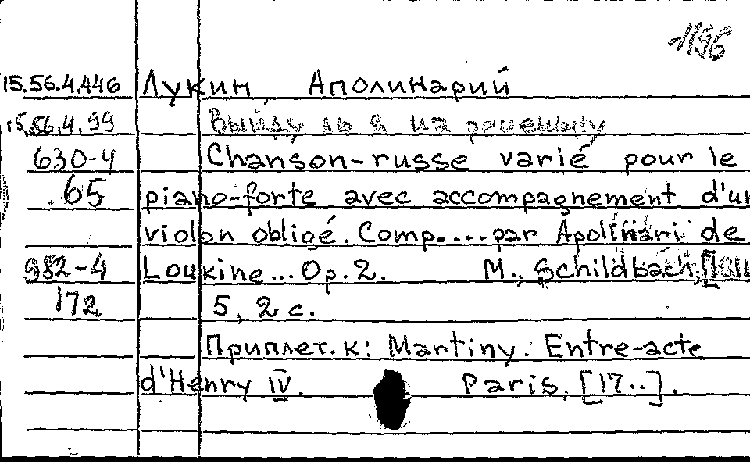 1196
15.56.4.446 Лукин, Аполинарий
15.56.4.99 Выйду ль я на реченьку
630-4 Chanson-russe varié pour le
65 piano-forte avec accompagnement d'un
violon obligé. Comp....par Apolinari de
982-4 Loukine... Op. 2. M., Schildbach,
172 5, 2 с.
Приплет. к: Martiny. Entre-acte
d'Henry IV. Paris, [17..].